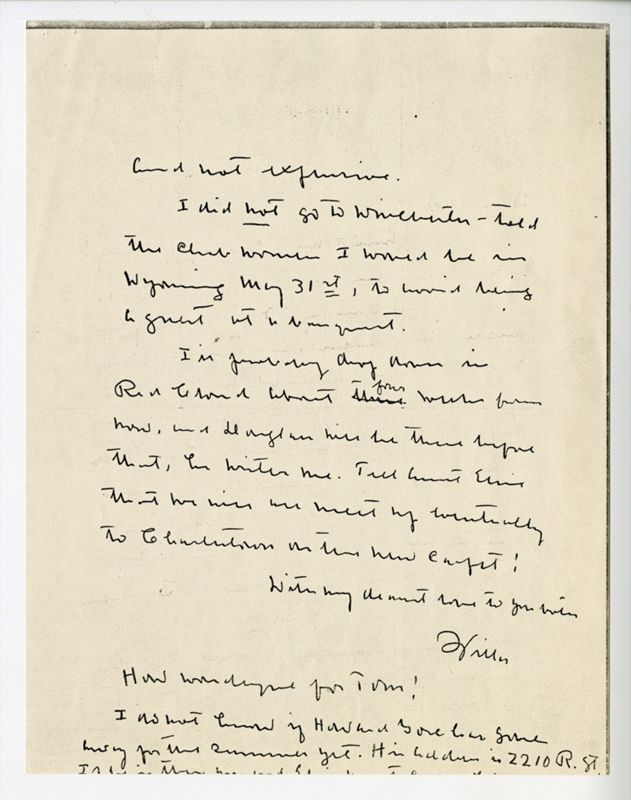 and not expensive.
I did not go to Winchester - told
the Club women I would be in
Wyoming May 31st, to avoid being
a guest at a banquet.
I'll probably drop down in
Red Cloud about three four weeks from
now, and Douglass will be there before
that, he writes me. Tell Aunt Elsie
that we will all meet up eventually
to Charleston on the new Carpet!
With my dearest love to you both
Willa
How wonderful for Tom!
I do not know if Howard Gore has gone
away for the summer yet. His address is 2210 R. St.